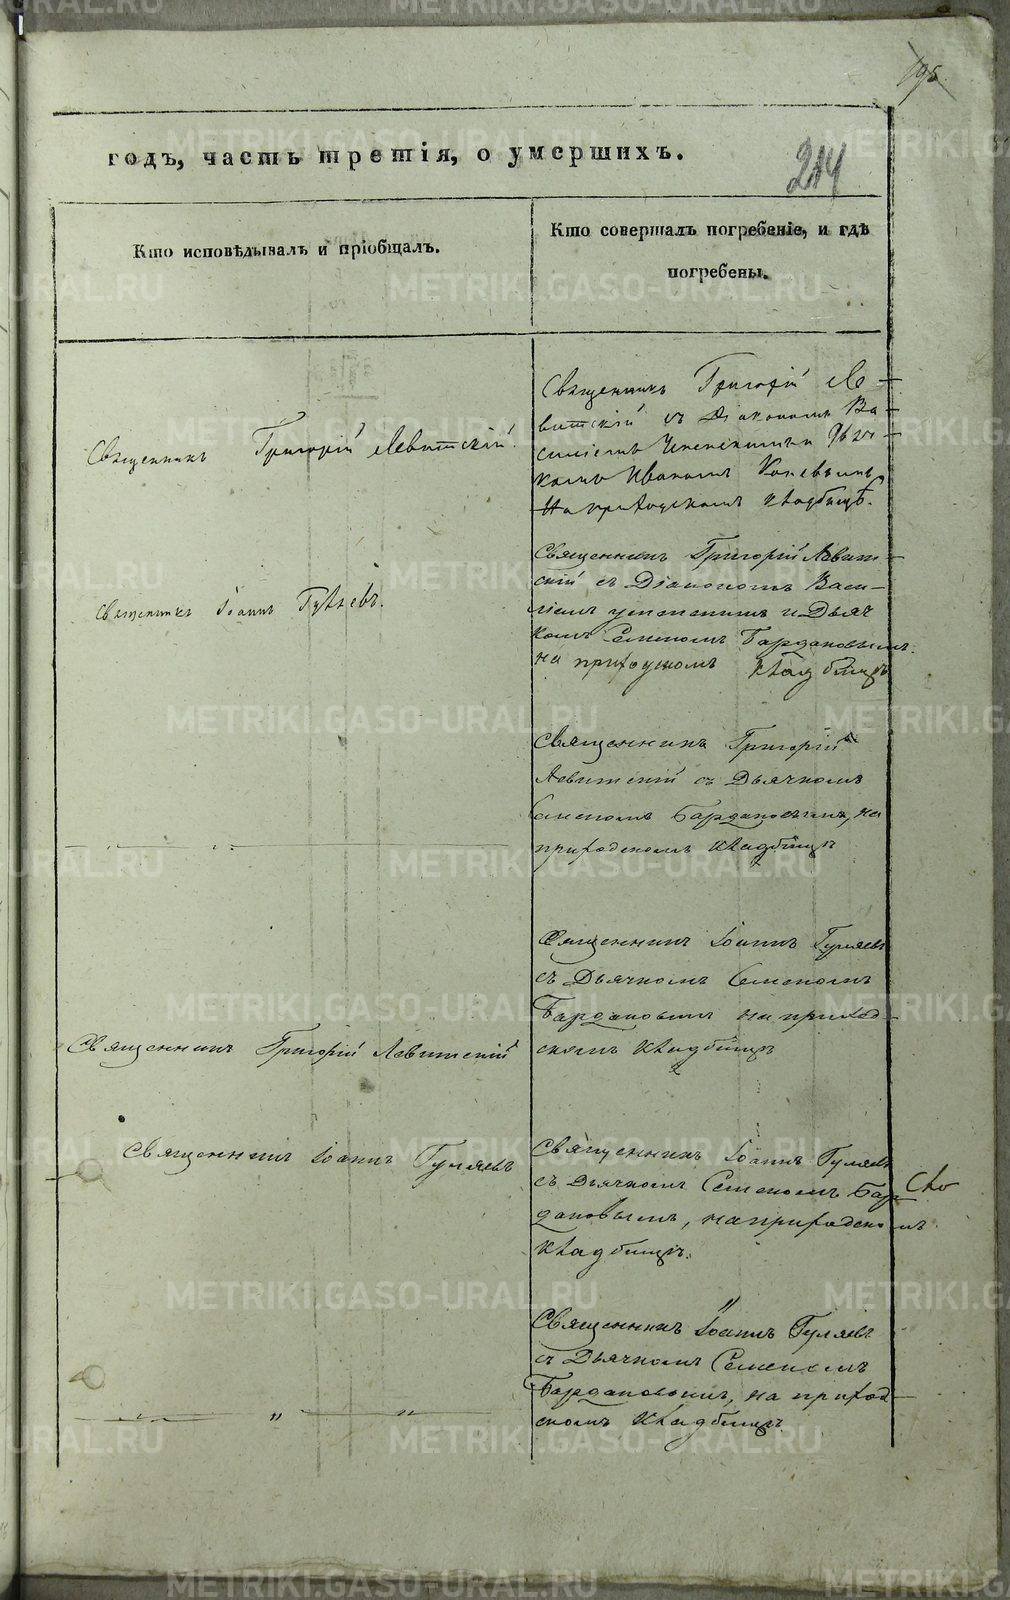 195
годъ, часть третія, о умершихъ.
214
Кто исповѣдывалъ и пріобщалъ.
Кто совершалъ погребеніе, и гдѣ
погребены.
Священникъ Григорій Левитскій.
Священникъ Григорій Ле-
витскій съ Діакономъ Ва-
силіемъ и Дьяч-
комъ Иваномъ
На приходскомъ кладбищѣ.
Священникъ Іоаннъ Гуляевъ.
Священникъ Григорій Левит-
скій съ Діакономъ Васи-
ліемъ и Дьяч
комъ Семеномъ Бардановымъ
на приходскомъ кладбищѣ
Священникъ Григорій
Левитскій съ Дьячкомъ
Семеномъ Бардановымъ, на
приходскомъ кладбищѣ
Священникъ Григорій Левитскій
Священникъ Іоаннъ Гуляевъ
съ Дьячкомъ Семеномъ
Бардановымъ на приход-
скомъ кладбищѣ
Священникъ Іоаннъ Гуляевъ
Священникъ Іоаннъ Гуляевъ
съ Дьячкомъ Семеномъ Бар
дановымъ, на приходскомъ
кладбищѣ.
Священникъ Іоаннъ Гуляевъ
съ Дьячкомъ Семеномъ
Бардановымъ, на приход-
скомъ кладбищѣ
METRIKI.GASO-URAL.RU